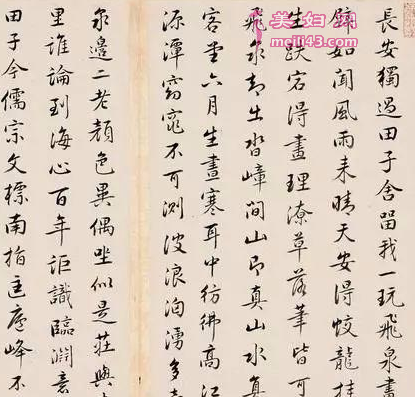 長安獨過田子舍留我一玩飛泉畫
壁如聞風雨來晴天安得蛟龍挂
生跌宕得畫理潦草落筆皆可
飛泉却出沓嶂間山即真山水真
客堂六月生晝寒耳中彷彿高江
源潭窈窕不可測波浪洶湧多
泉邊二老顏色異偶坐似是莊與
里誰論到海心百年詎識臨淵意
田子今儒宗文標南指匡廬峰不
美妇网
meiji43.com